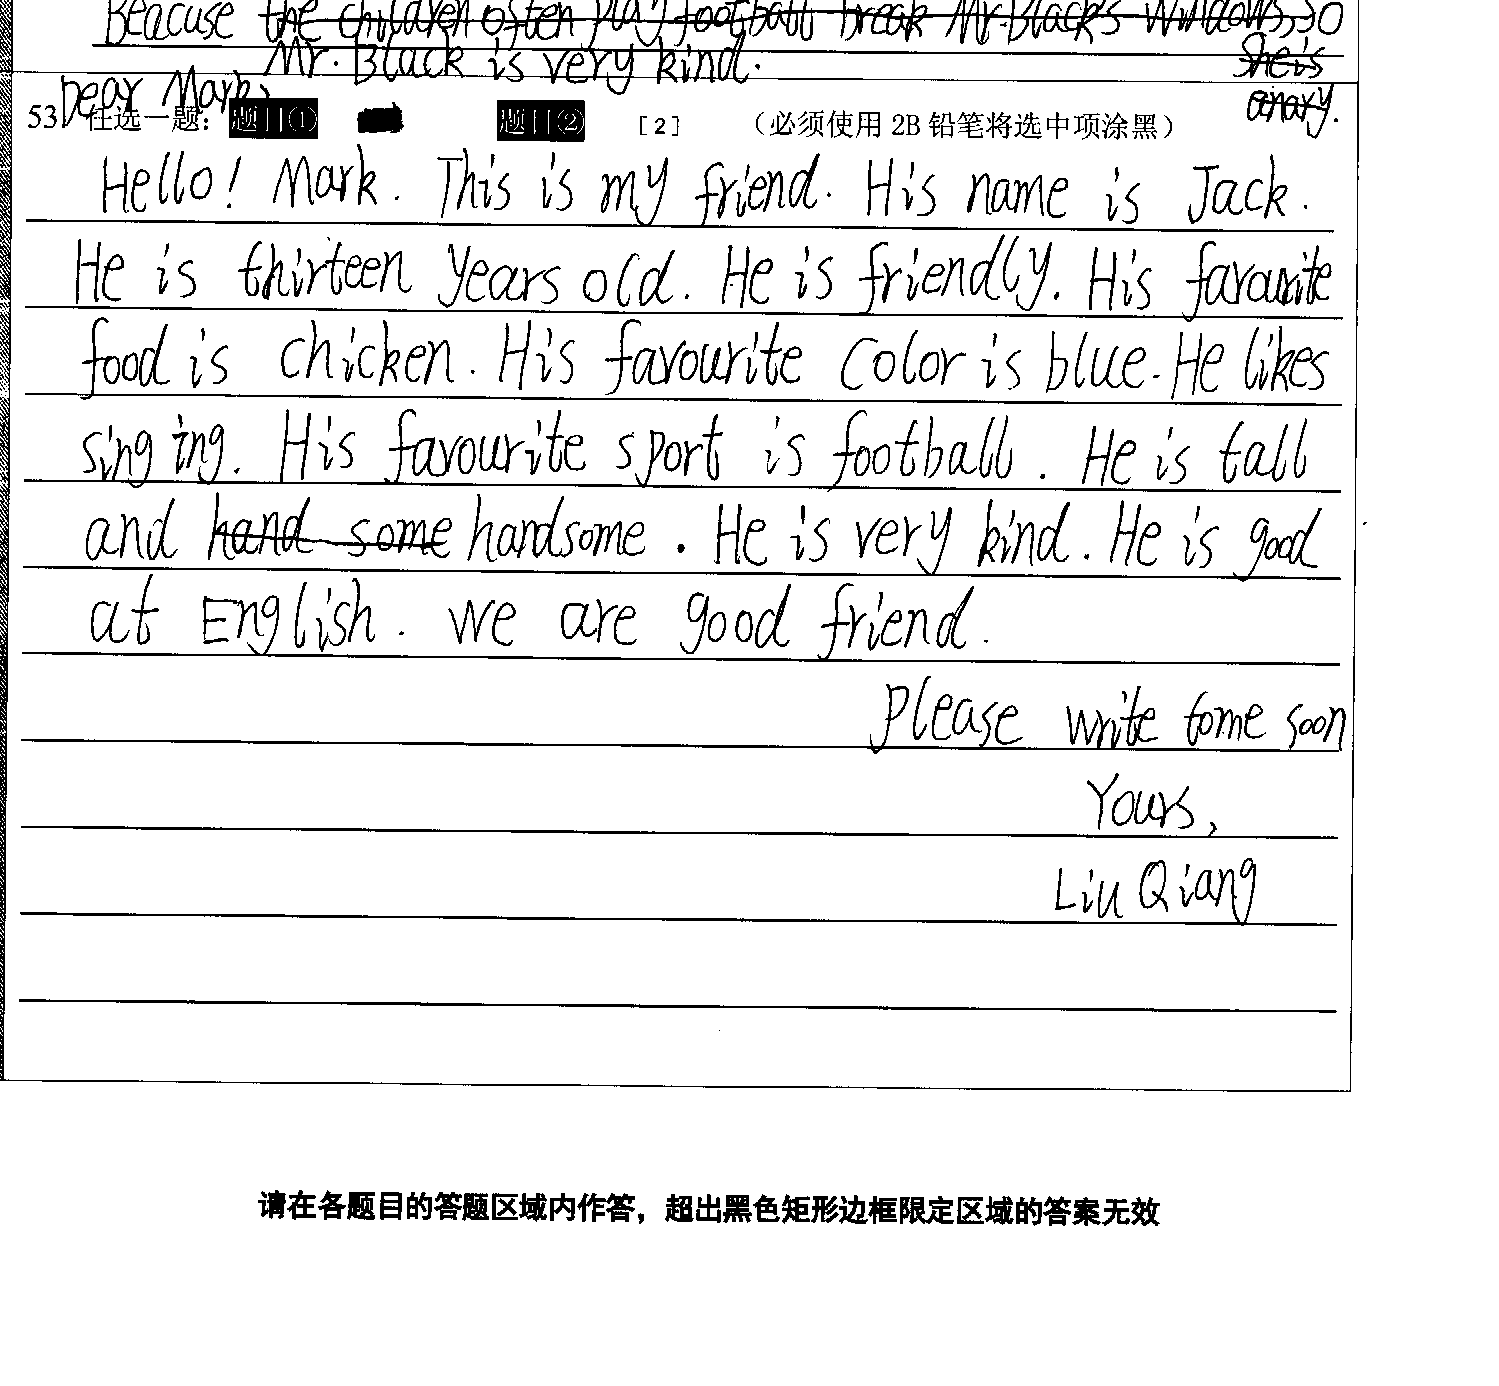 Beacuse the children often play football break Mr.Black's windows, so
Mr. Black is very kind.
she is
anary.
Dear Mark,
53 任选一题： 题目① 题目② [2] （必须使用 2B 铅笔将选中项涂黑）
Hello! Mark. This is my friend. His name is Jack.
He is thirteen years old. He is friendly. His favourite
food is chicken. His favourite color is blue. He likes
singing. His favourite sport is football. He is tall
and hand some handsome. He is very kind. He is good
at English. We are good friend.
Please write to me soon
Yours,
Liu Qiang
请在各题目的答题区域内作答，超出黑色矩形边框限定区域的答案无效